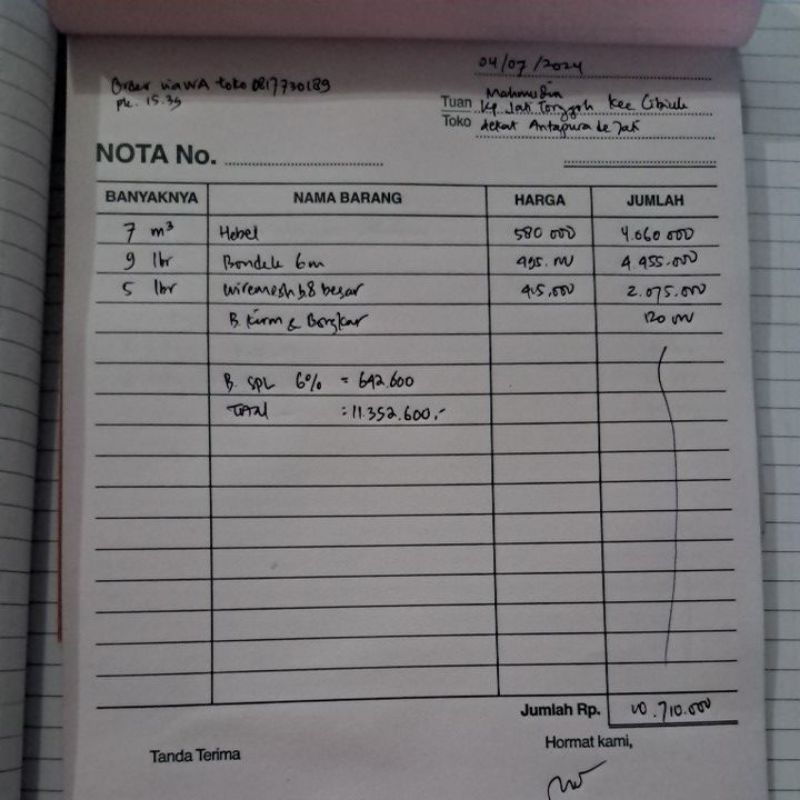 04/07/2024
Order via WA toko 0817730189
pk. 15.35
Tuan Mahmudin
Kp. Jati Kec Cibiuk
Toko dekat Antapura de Jati
NOTA No.
BANYAKNYA NAMA BARANG HARGA JUMLAH
7 m³ Hebel 580 000 4.060 000
9 lbr Bondek 6m 495.000 4.455.000
5 lbr wiremesh b.8 besar 415.000 2.075.000
B. Kirim & Bongkar 120 000
B. SPL 6% = 642.600
TOTAL : 11.352.600,-
Jumlah Rp. 10.710.000
Tanda Terima Hormat kami,